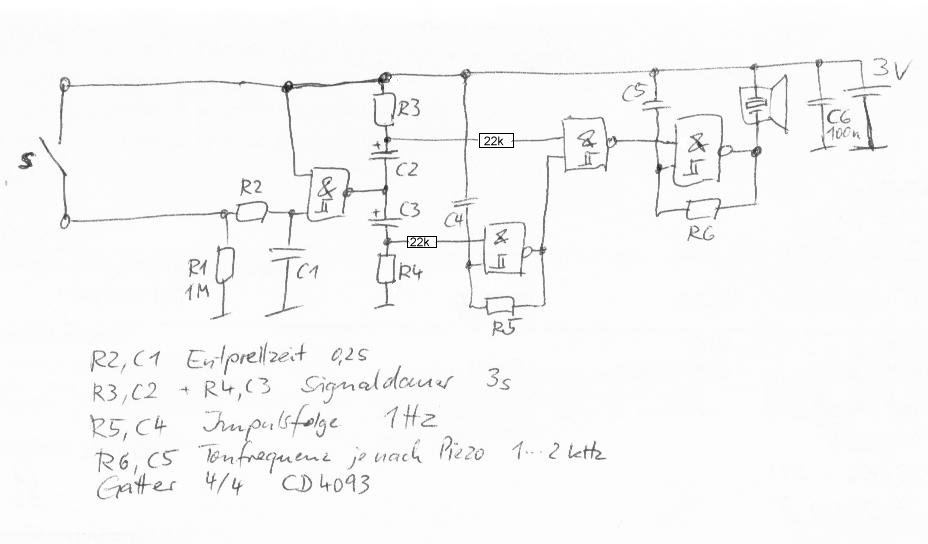 3V
C5
R3
22k
C6
100n
&
+
C2
&
R2
&
+
C3
C4
S
22k
&
R6
R1
1M
C1
R4
R5
R2, C1 Entprellzeit 0,2s
R3, C2 + R4, C3 Signaldauer 3s
R5, C4 Impulsfolge 1Hz
R6, C5 Tonfrequenz je nach Piezo 1...2 kHz
Gatter 4/4 CD4093